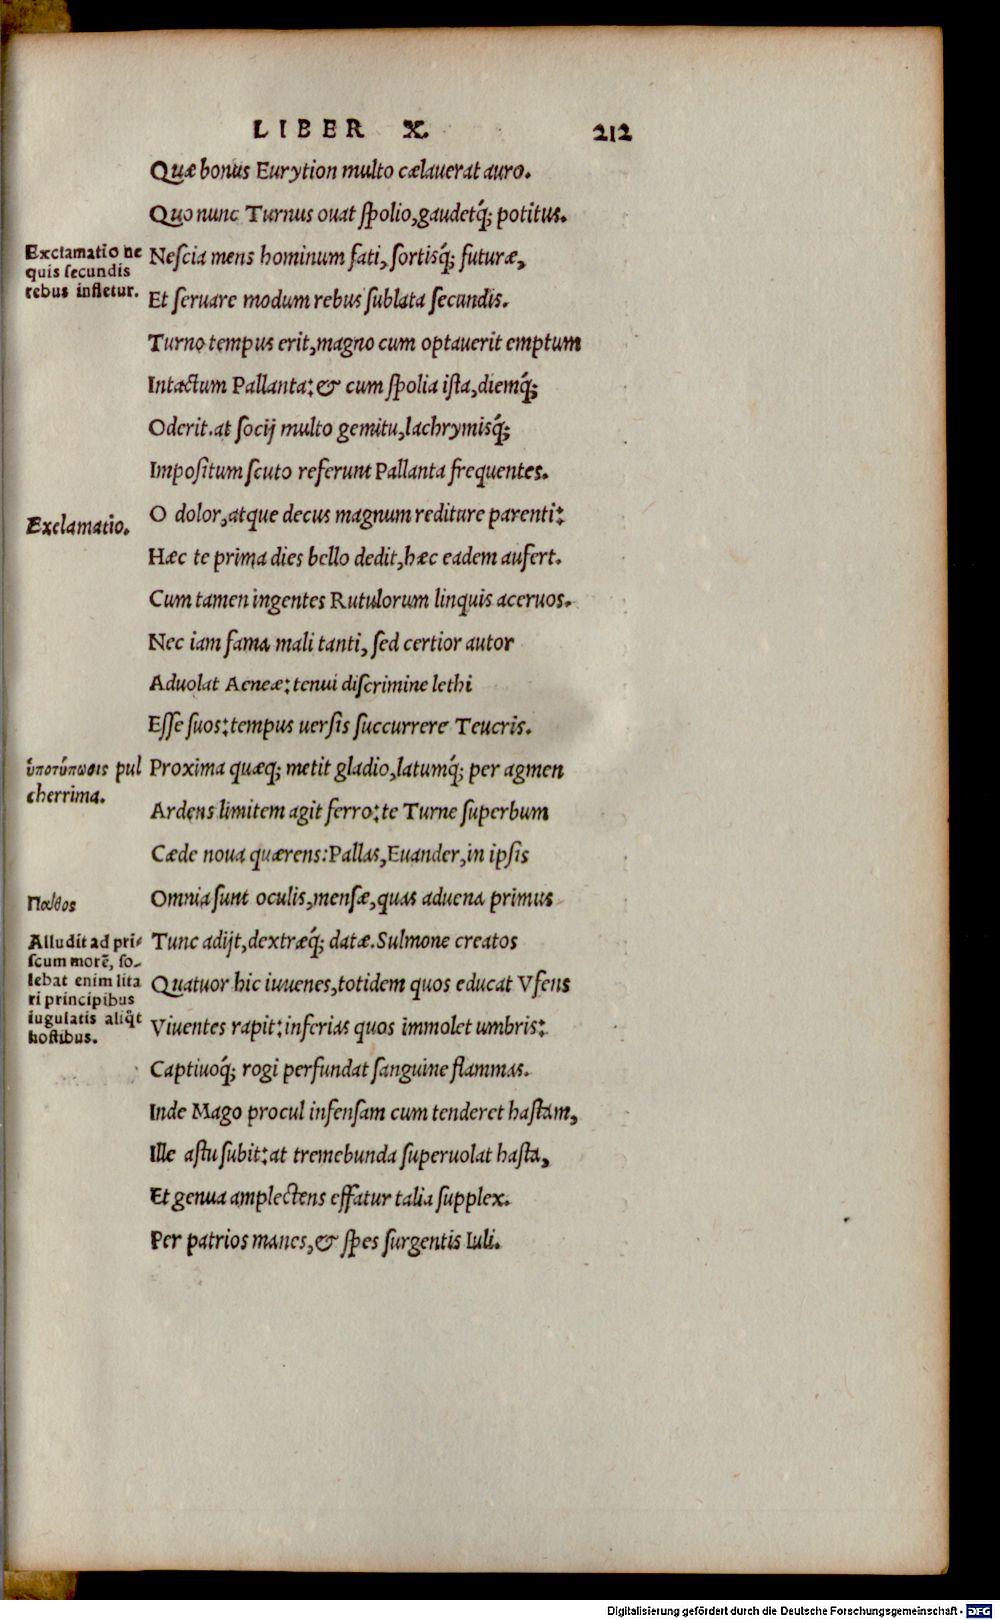 LIBER X. 212
Quæ bonus Eurytion multo cælauerat auro.
Quo nunc Turnus ouat ſpolio, gaudetq́; potitus.
Exclamatio ne
quis ſecundis
rebus infletur.
Neſcia mens hominum fati, ſortisq́; futuræ,
Et ſeruare modum rebus ſublata ſecundis.
Turno tempus erit, magno cum optauerit emptum
Intactum Pallanta: & cum ſpolia iſta, diemq́;
Oderit. at ſocij multo gemitu, lachrymisq́;
Impoſitum ſcuto referunt Pallanta frequentes.
Exclamatio.
O dolor, atque decus magnum rediture parenti:
Hæc te prima dies bello dedit, hæc eadem aufert.
Cum tamen ingentes Rutulorum linquis aceruos.
Nec iam fama mali tanti, ſed certior autor
Aduolat Aeneæ: tenui diſcrimine lethi
Eſſe ſuos: tempus uerſis ſuccurrere Teucris.
ὑποτύπωσις pul
cherrima.
Proxima quæq; metit gladio, latumq́; per agmen
Ardens limitem agit ferro: te Turne ſuperbum
Cæde noua quærens: Pallas, Euander, in ipſis
Παθος
Omnia ſunt oculis, menſæ, quas aduena primus
Alludit ad pri⸗
ſcum morē, ſo⸗
lebat enim lita
ri principibus
iugulatis aliq̃t
hoſtibus.
Tunc adijt, dextræq́; datæ. Sulmone creatos
Quatuor hic iuuenes, totidem quos educat Vfens
Viuentes rapit: inferias quos immolet umbris:
Captiuoq́; rogi perfundat ſanguine flammas.
Inde Mago procul infenſam cum tenderet haſtam,
Ille aſtu ſubit: at tremebunda ſuperuolat haſta,
Et genua amplectens effatur talia ſupplex.
Per patrios manes, & ſpes ſurgentis Iuli.
Digitalisierung gefördert durch die Deutsche Forschungsgemeinschaft - DFG